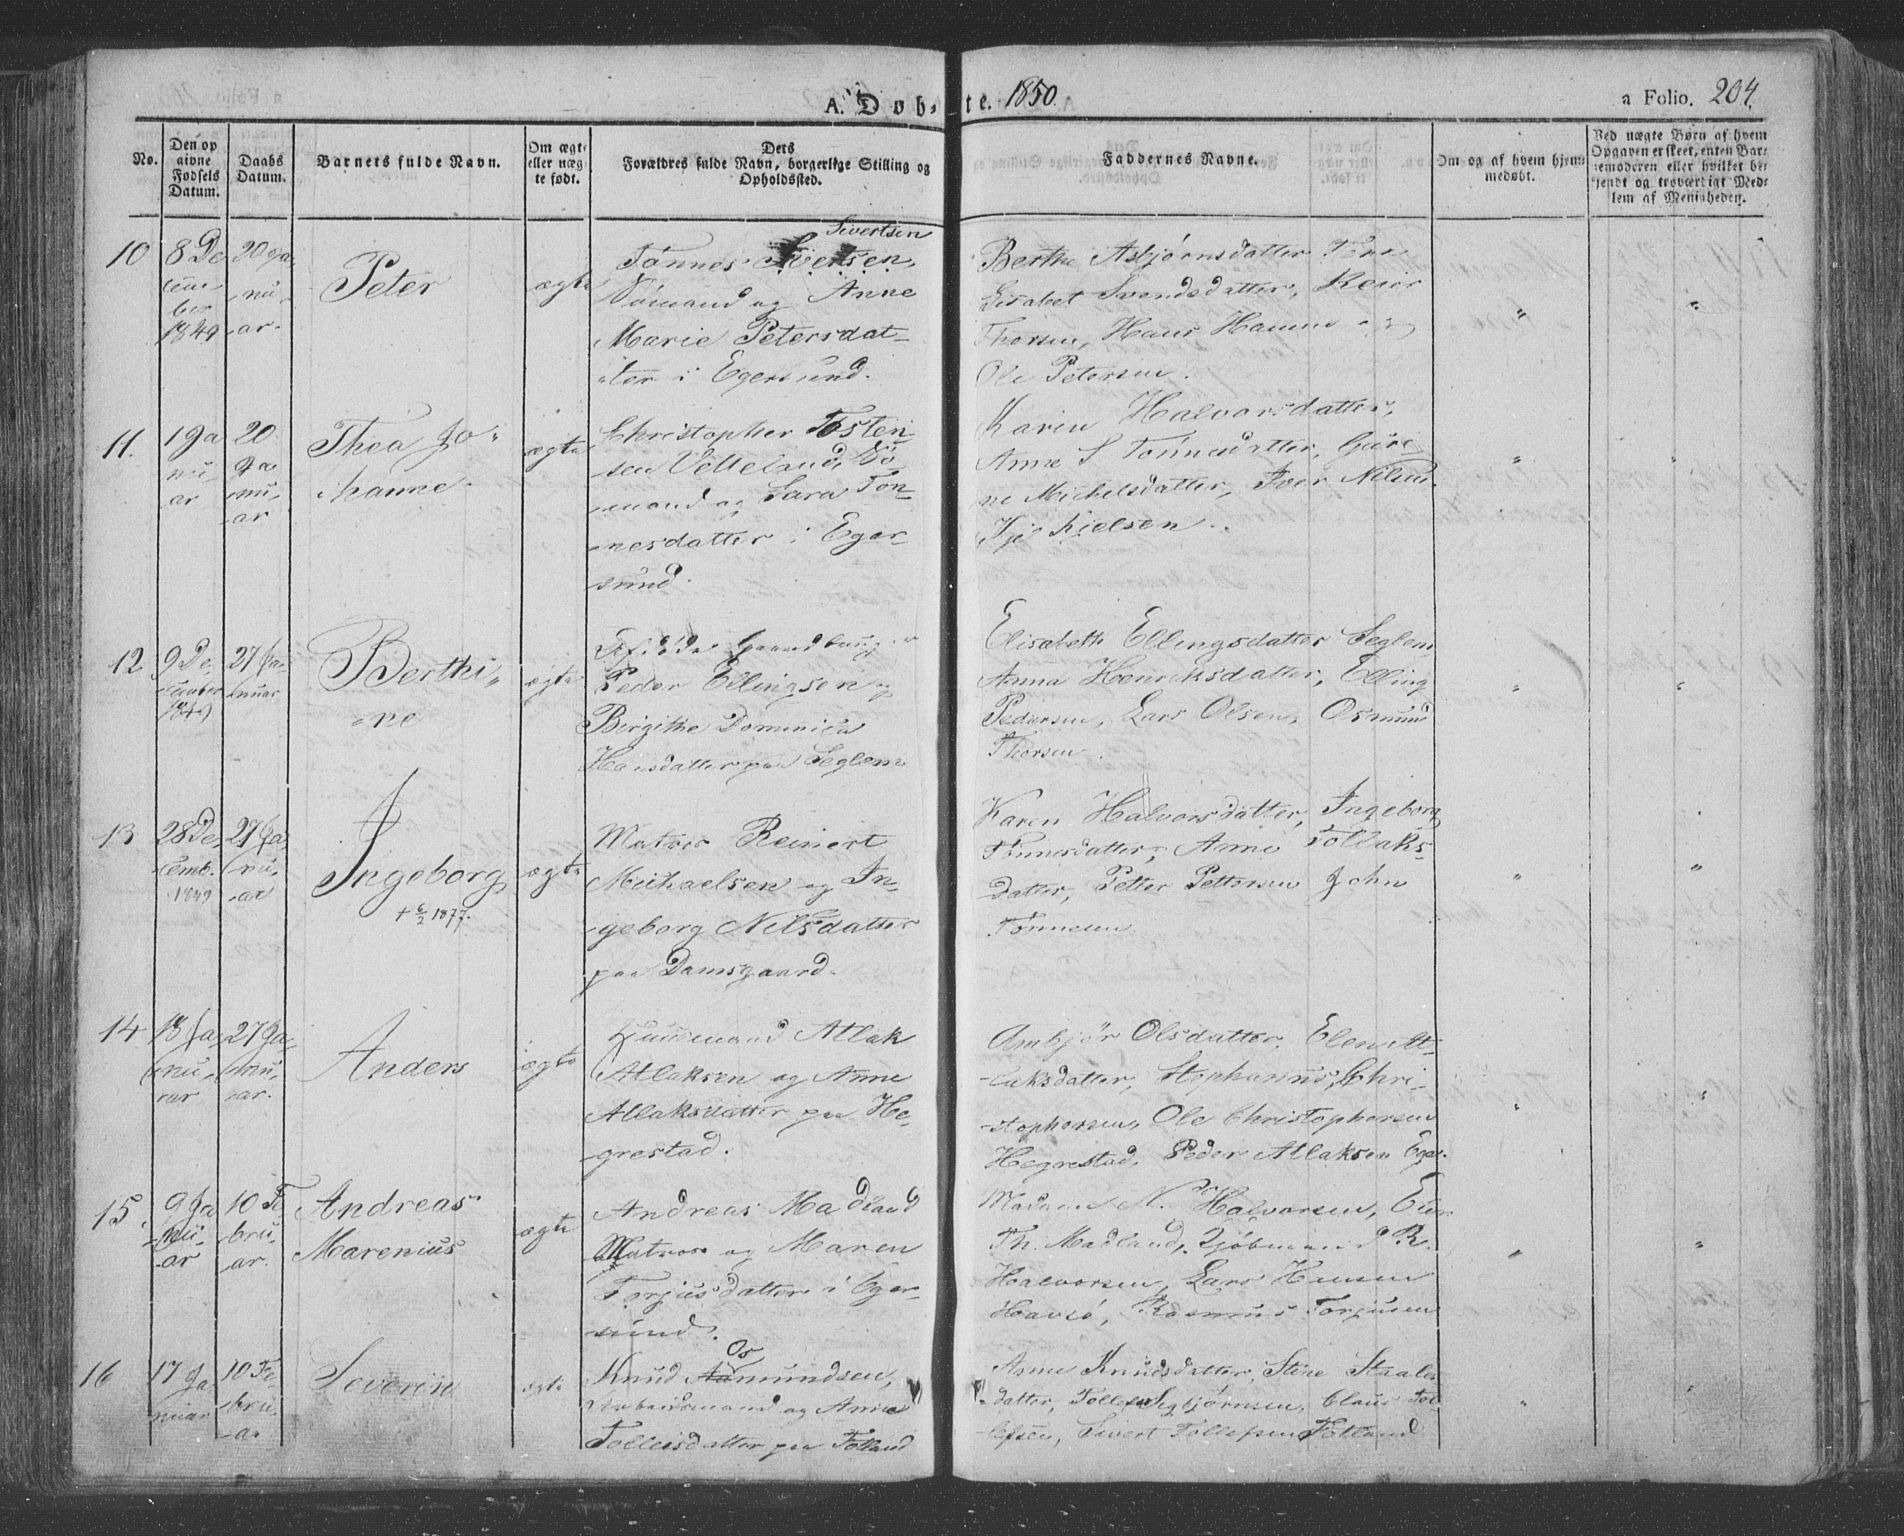 A. Døb- te. 1850.
a Folio. 204.
No.
Den op
givne
Fødsels
Datum.
Daabs
Datum.
Barnets fulde Navn.
Om ægte
eller uæg-
te født.
Dets
Forældres fulde Navn, borgerlige Stilling og
Opholdssted.
Faddernes Navne.
Om og af hvem hjem-
medøbt.
Ved uægte Børn af hvem
Opgaven er skeet, enten Bar-
nemoderen eller hvilket be-
kjendt og troværdigt Med-
lem af Menigheden.
10
8 De
cem-
ber
1849
20 Ja
nu-
ar.
Peter
ægte
Sivertsen
Tønnes Sivertsen,
og Anne
Marie Petersdat-
ter i Egersund.
Berthe Asbjørnsdatter
Lisabet Svendsdatter, Reier
Thorsen, Hans
Ole Petersen.
11.
1 Ja
nu-
ar
20
Ja
nu-
ar
Thea Jo-
hanne.
ægte
Christopher Tosten-
sen Vetteland, Sø
mand og Sara Tøn-
nesdatter i Eger-
sund.
Karen Halvorsdatter,
Anne S Tönnesdatter, Guri-
ne Michelsdatter, Iver Nilsen
Kielsen.
12
9 De
cember
1849
27 Ja-
nuar
Berthi-
ne
ægte
Peder Ellingsen og
Birgithe Dominica
Hansdatter paa Seglem
Elisabeth Ellingsdatter Seglem
Anna Henriksdatter, Elling
Pedersen, Lars Olsen, Osmund
Thorsen.
13
28 De
cemb.
1849
27 Ja
nu-
ar
Ingeborg
+ 6/2 1877.
ægte
Matros Reinert
Michaelsen og In-
geborg Nilsdatter
paa Damsgaard.
Karen Halvorsdatter, Ingeborg
Tönnesdatter, Anne Tollaks-
datter, Petter Pettersen John
Tønnesen
14
18 Ja
nu-
ar
27 Ja
nu-
ar.
Anders
ægte
Huusmand Atlak
Atlaksen og Anne
Atlaksdatter paa He-
grestad.
Anbjør Olsdatter, Elen At-
laksdatter, Stephanus Chri-
stophersen, Ole Christophersen
Hegrestad, Peder Atlaksen Eger
15.
9 Ja
nu-
ar
10 Fe
bru-
ar.
Andreas
Marenius
ægte
Andreas Madland
Matros og Maren
Torjusdatter i Eger-
sund.
Madam N. Halvorsen,
Th. Madland, Kjöbmand R.
Halvorsen, Lars Hansen
Havsö, Rasmus Torjusen
16
17 Ja
nuar
10 Fe-
bru-
ar
Severin
ægte
Os
Knud Aamundsen,
Arbeidsmand og Anne
Tollefsdatter paa Fotland
Anne Knudsdatter, Stine Staale
datter, Tollef Sigbjørnsen, Claus Tol-
lefsen, Sivert Tollefsen Fotland